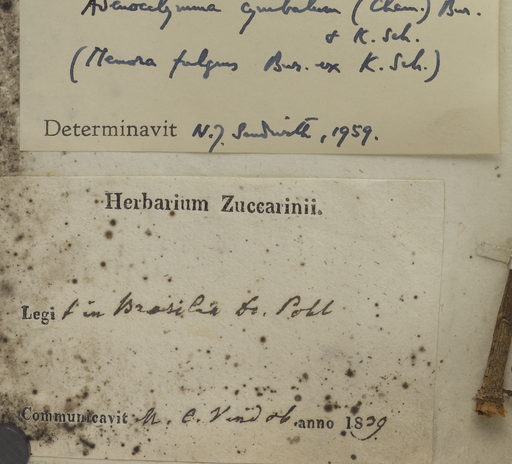 Adenocalymma cymbalum (Cham.) Bur.
& K. Sch.
(Memora fulgens Bur. ex K. Sch.)
Determinavit N.Y. Sandwith, 1959.
Herbarium Zuccarinii.
Legi t in Brasilia Dr. Pohl
Communicavit M. C. Vindob. anno 1839